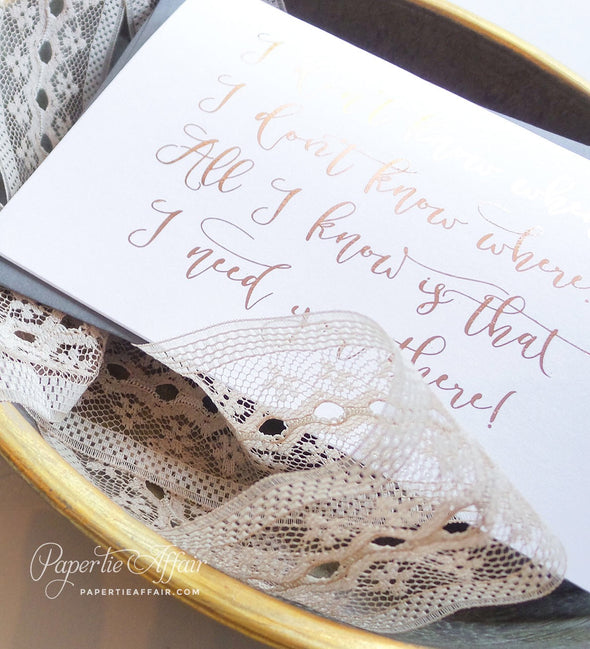 I don't know when.
I don't know where.
All I know is that
I need you there!
Papertie Affair
PAPERTIEAFFAIR.COM